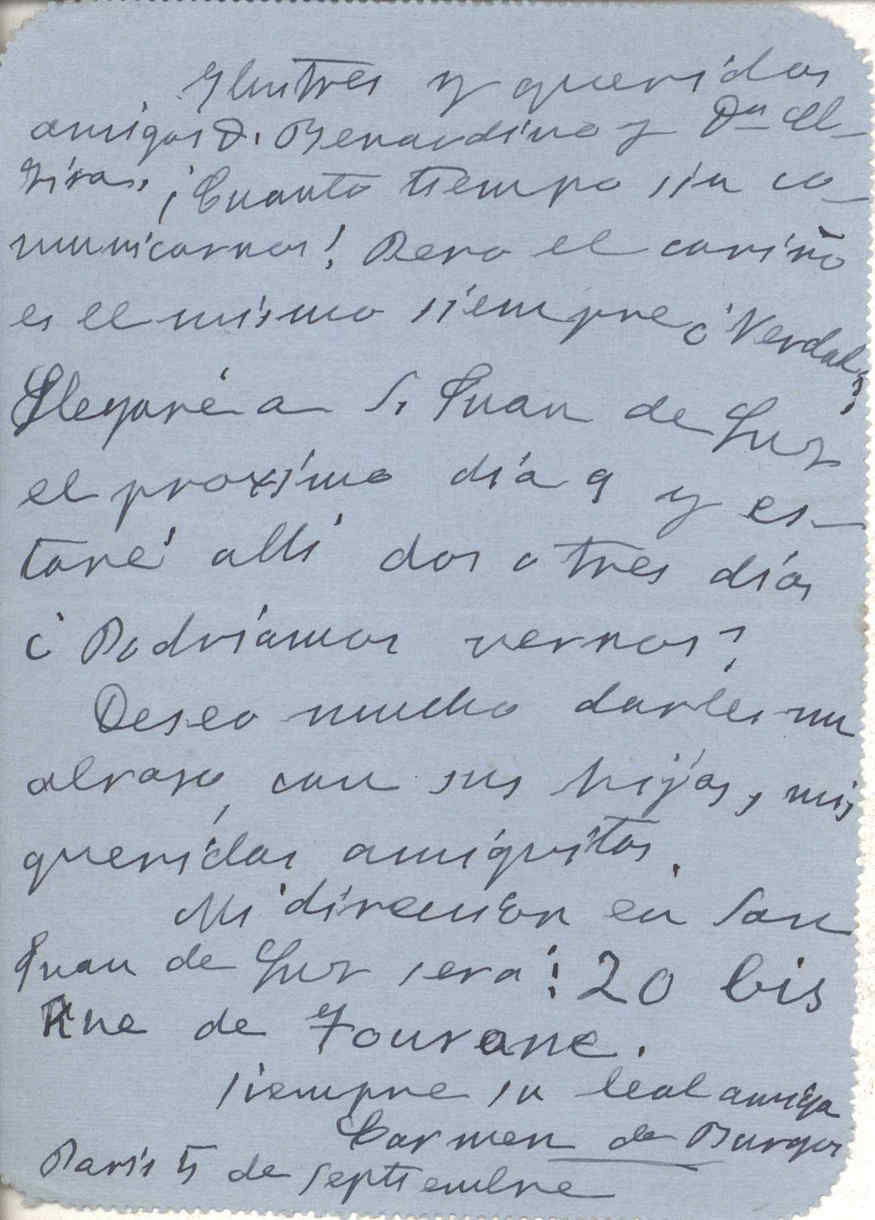 Ilustres y queridos
amigos D. Bernardino y Dª El-
vira. ¡Cuanto tiempo sin co-
municarnos! Pero el cariño
es el mismo siempre ¿Verdad?
Llegaré a S. Juan de Luz
el proximo día 9 y es-
taré allí dos o tres días
¿Podríamos vernos?
Deseo mucho darles un
abrazo, con sus hijas, mis
queridas amiguitas.
Mi direccion en San
Juan de Luz sera: 20 bis
Rue de Tourane.
Siempre su leal amiga
Carmen de Burgos
Paris 5 de septiembre